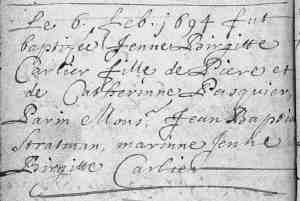 Le 6. Feb. 1694 fut
baptizée Jenne Birgitte
Carlier fille de Piere et
de Catherinne Pasquier
Parin Mons.r Jean Baptis
Stratman, marinne Jenne
Birgitte Carlier